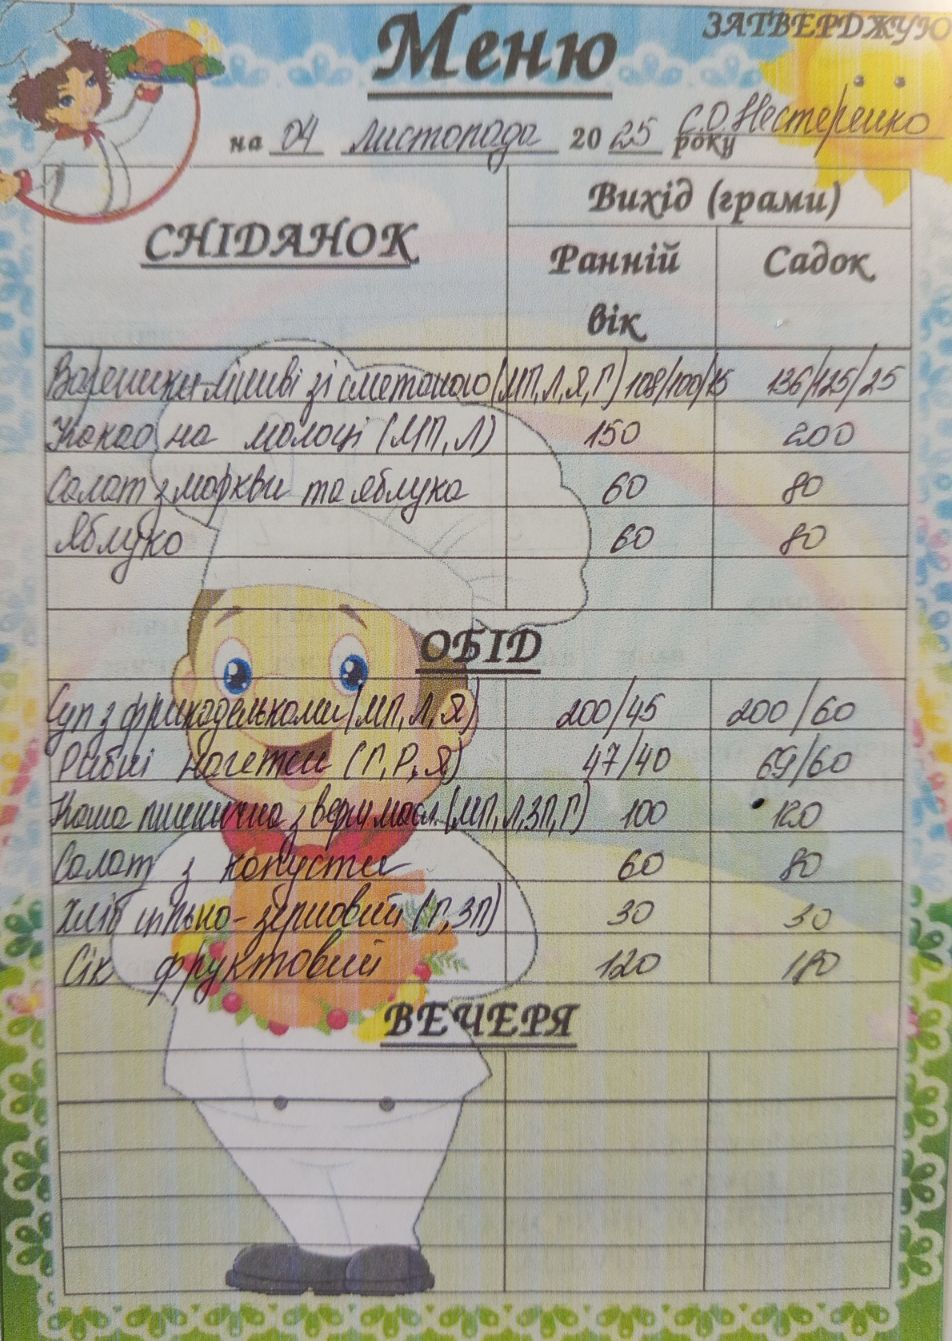 ЗАТВЕРДЖУЮ
Меню
С.О Нестеренко
на 04 листопада 2025 року
СНІДАНОК
Вихід (грами)
Ранній вік
Садок
Вареники ліниві зі сметаною (МП, Л, Я, Г) 108/100/15 136/125/25
Какао на молоці (МП, Л) 150 200
Салат з моркви та яблука 60 80
Яблуко 60 80
ОБІД
Суп з фрикадельками (МП, Л, Я) 200/45 200/60
Рибні нагетси (Г, Р, Я) 47/40 69/60
Каша пшенична з верш масл. (МП, Л, ЗП, Г) 100 120
Салат з капусти 60 80
Хліб цільно-зерновий (Г, ЗП) 30 30
Сік фруктовий 120 180
ВЕЧЕРЯ